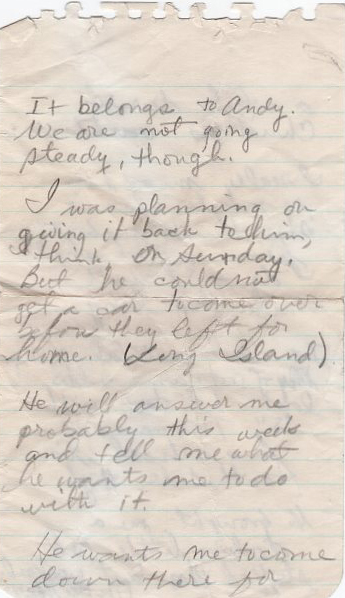 It belongs to Andy.
We are not going
steady, though.
I was planning on
giving it back to him,
I think, on Sunday.
But he could not
get a car to come over
before they left for
home. (Long Island)
He will answer me
probably this week
and tell me what
he wants me to do
with it.
He wants me to come
down there for